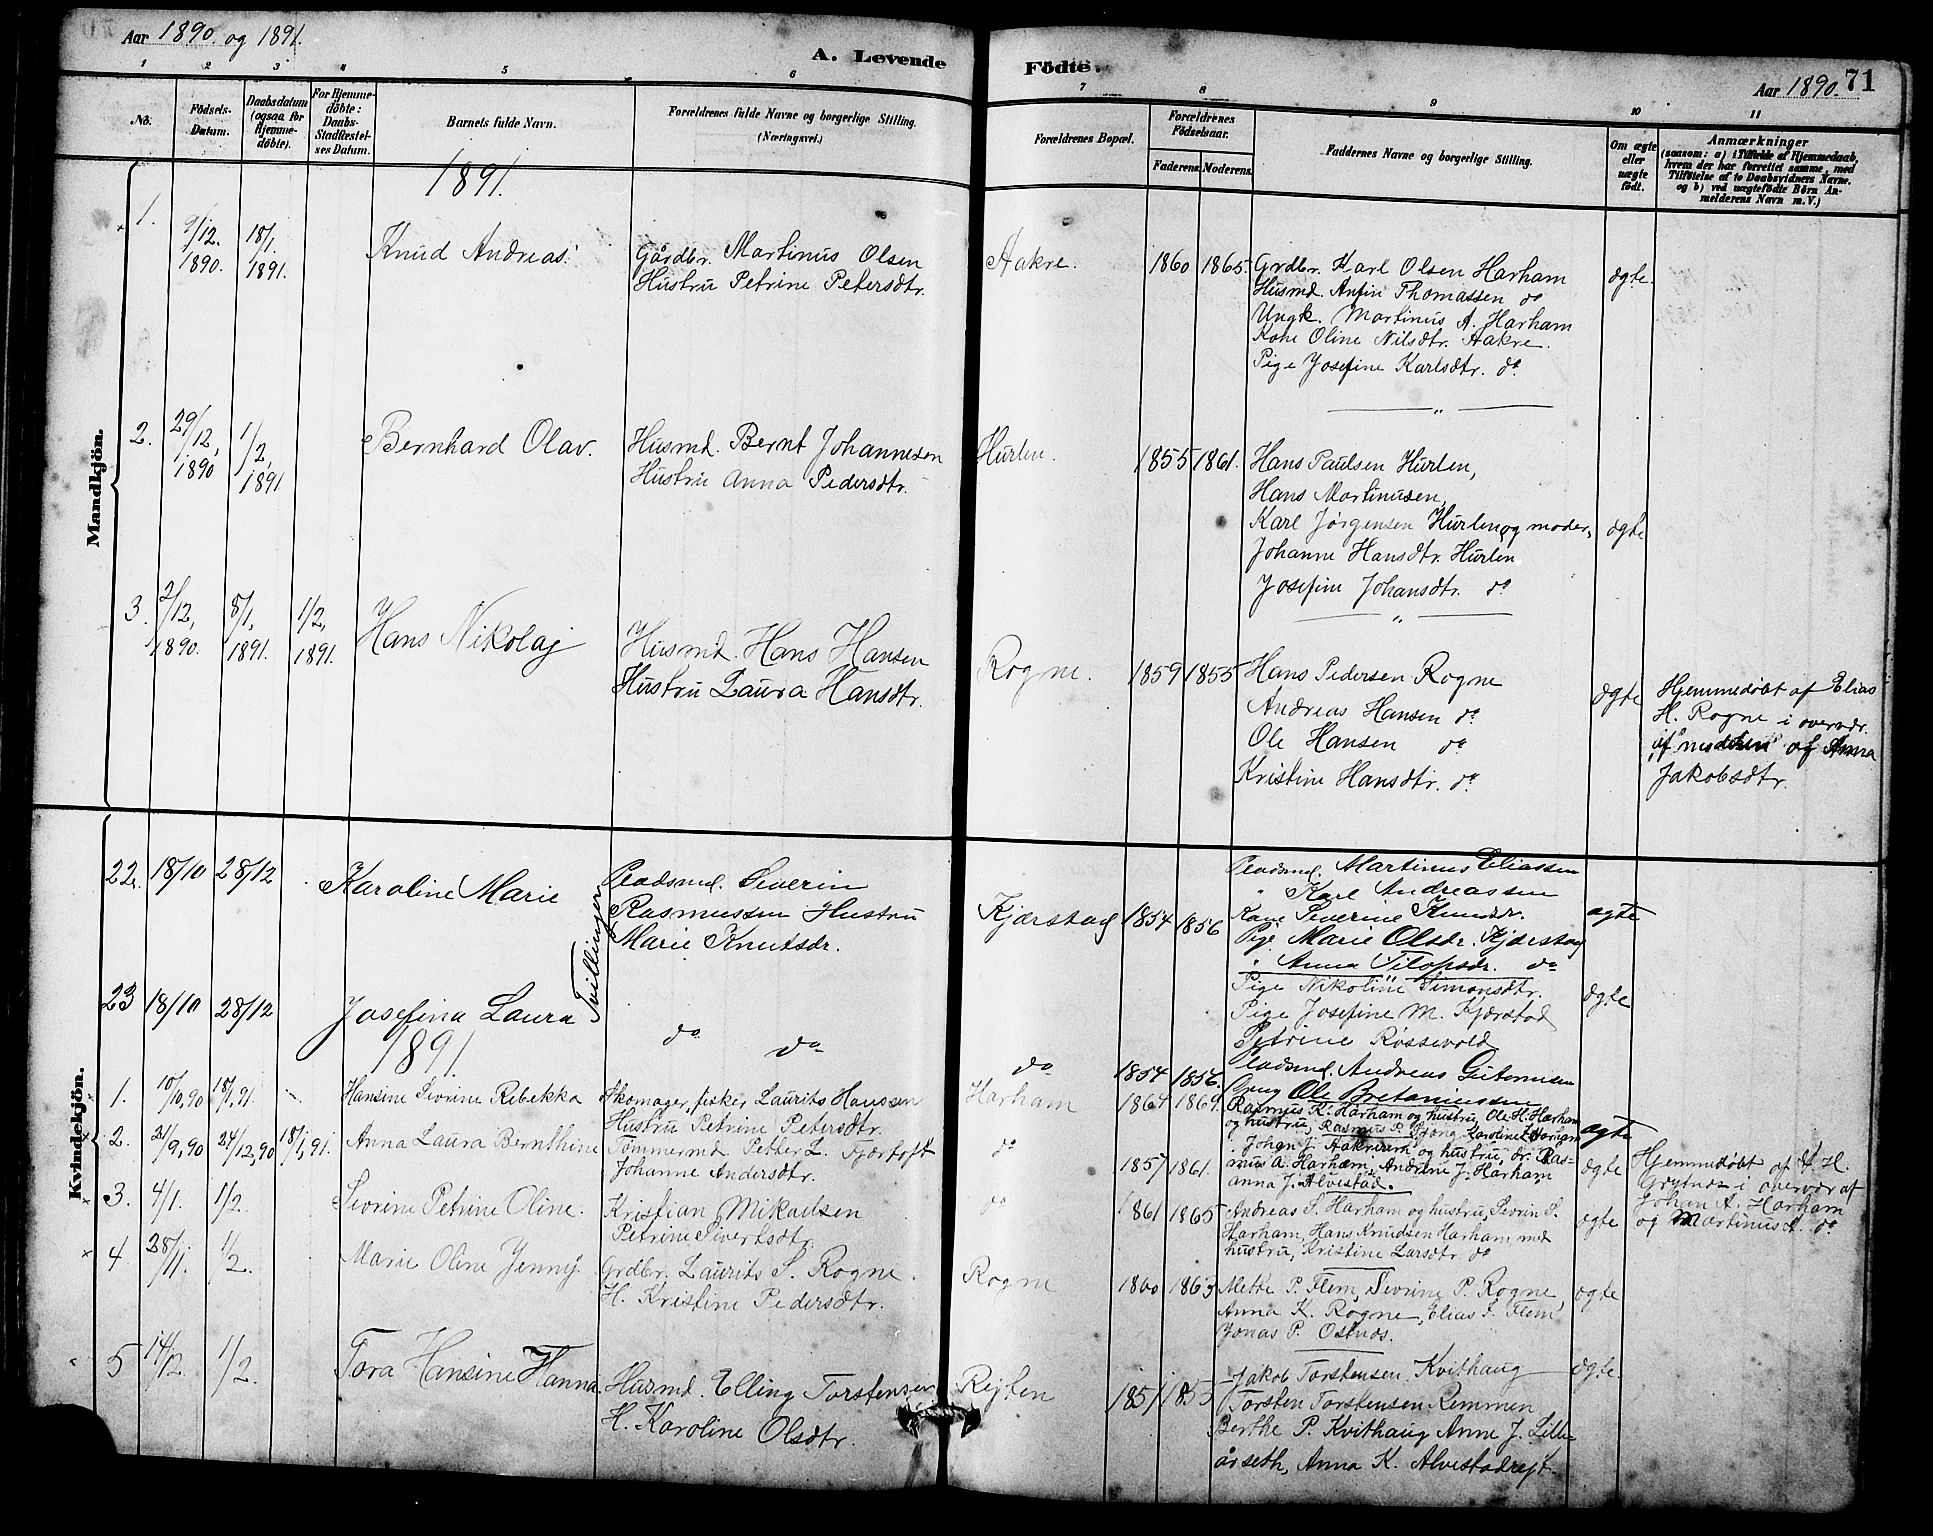 Aar 1890. og 1891.
A. Levende
Födte.
Aar 1890. 71
1 2 3 4 5 6 7 8 9 10 11
No.
Födsels-Datum.
Daabsdatum (ogsaa for Hjemmedöbte).
For Hjemmedöbte: Daabs-Stadfæstelses Datum.
Barnets fulde Navn.
Forældrenes fulde Navne og borgerlige Stilling. (Næringsvei.)
Forældrenes Bopæl.
Forældrenes Födselsaar.
Faderens. Moderens.
Faddernes Navne og borgerlige Stilling.
Om ægte eller uægte födt.
Anmærkninger
(saasom: a) i Tilfælde af Hjemmedaab,
hvem der har forrettet samme, med
Tilföielse af to Daabsvidners Navne.
og b) ved uægtefödte Börn An-
melderens Navn m. V.)
Mandkjön.
1891.
1. 9/12. 1890. 18/1. 1891. Knud Andreas.
Gårdbr. Martinus Olsen
Hustru Petrine Petersdtr.
Aakre. 1860 1865.
Grdbr. Karl Olsen Harham
Husmd. Anfin Thomassen do
Ungk. Martinus A. Harham
Kone Oline Nilsdtr. Aakre.
Pige Josefine Karlsdtr. do.
ægte.
2. 29/12, 1890 1/2, 1891 Bernhard Olav.
Husmd. Bernt Johannesen
Hustru Anna Pedersdtr.
Hurlen. 1855 1861.
Hans Paulsen Hurlen,
Hans Martinusen,
Karl Jørgensen Hurlen og moder,
Johanne Hansdtr. Hurlen
Josefine Johansdtr. do
ægte
3. 2/12, 1890. 8/1, 1891. 1/2, 1891. Hans Nikolaj
Husmd. Hans Hansen
Hustru Laura Hansdtr.
Rogne. 1859 1855
Hans Pedersen Rogne
Andreas Hansen do
Ole Hansen do
Kristine Hansdtr. do
ægte
Hjemmedöbt af Elias
H. Rogne i overvær
af moderen og Anna
Jakobsdtr.
Kvindekjön.
22. 18/10 28/12 Karoline Marie
Tvillinger
Pladsmd. Severin
Rasmussen Hustru
Marie Knutsdr.
Kjærstad 1854 1856
Pladsmd. Martinus Eliassen
" Karl Andreassen
Kone Severine Knudsdr.
Pige Marie Olsdr. Kjærstad
" Anna do
ægte
23 18/10 28/12 Josefina Laura
do do
do 1854 1856.
Pige Nikoline Simonsdtr.
Pige Josefine M. Kjærstad
Petrine Røssevold
Pladsmd. Andreas
Ole
ægte
1891.
1. 10/10,90 18/1,91. Hansine Sevrine Rebekka
Skomager, fisker, Laurits Hanssen
Hustru Petrine Petersdtr.
Harham 1864 1869.
Rasmus K. Harham og hustru, Ole H. Harham
og hustru, Rasmus P. Karoline L. Harham
ægte
2. 21/9,90 24/12,90 18/1,91. Anna Laura Bernthine
Tømmermd. Petter L. Fjærtoft
Johanne Andersdtr.
do 1857 1861.
Johan J. og hustru, Ras-
mus A. Harham, Andrine J. Harham
Anna J. Alvestad.
ægte
Hjemmedöbt af H.
i overvær af
Johan A. Harham
og Martinus A. do
3. 4/1. 1/2. Sevrine Petrine Oline.
Kristian Mikaelsen
Petrine Sivertsdtr.
do 1861 1865
Andreas S. Harham og hustru, Sevrin S.
Harham, Hans Knudsen Harham med
hustru, Kristine Larsdtr. do
ægte
4 28/11. 1/2. Marie Oline Jenny.
Grdbr. Laurits S. Rogne.
H. Kristine Pedersdtr.
Rogne 1860 1863
Mette P. Flem, Sevrine P. Rogne
Anna K. Rogne, Elias Flem
Jonas P. Ostnes.
ægte
5 14/12. 1/2. Tora Hansine Hanna
Husmd. Elling Torstensen
H. Karoline Olsdtr.
Rejten 1851 1855
Jakob Torstensen Kvithaug
Torsten Torstensen Remmen
Berthe P. Kvithaug Anne J. Lille-
årseth, Anna K. Alvestadrejt.
ægte